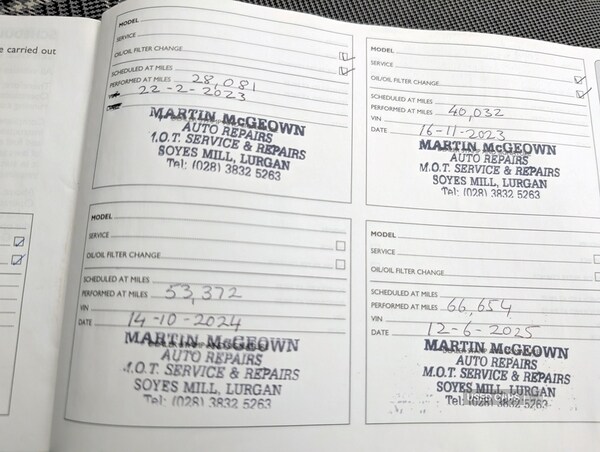 e carried out
MODEL
SERVICE
OIL/OIL FILTER CHANGE
SCHEDULED AT MILES
PERFORMED AT MILES 28,081
22-2-2023
MARTIN McGEOWN
AUTO REPAIRS
M.O.T. SERVICE & REPAIRS
SOYES MILL, LURGAN
Tel: (028) 3832 5263
MODEL
SERVICE
OIL/OIL FILTER CHANGE
SCHEDULED AT MILES
PERFORMED AT MILES 40,032
VIN
DATE 16-11-2023
MARTIN McGEOWN
AUTO REPAIRS
M.O.T. SERVICE & REPAIRS
SOYES MILL, LURGAN
Tel: (028) 3832 5263
MODEL
SERVICE
OIL/OIL FILTER CHANGE
SCHEDULED AT MILES
PERFORMED AT MILES 53,372
VIN
DATE 14-10-2024
MARTIN McGEOWN
AUTO REPAIRS
M.O.T. SERVICE & REPAIRS
SOYES MILL, LURGAN
Tel: (028) 3832 5263
MODEL
SERVICE
OIL/OIL FILTER CHANGE
SCHEDULED AT MILES
PERFORMED AT MILES 66,654
VIN
DATE 12-6-2025
MARTIN McGEOWN
AUTO REPAIRS
M.O.T. SERVICE & REPAIRS
SOYES MILL, LURGAN
Tel: (028) 3832 5263